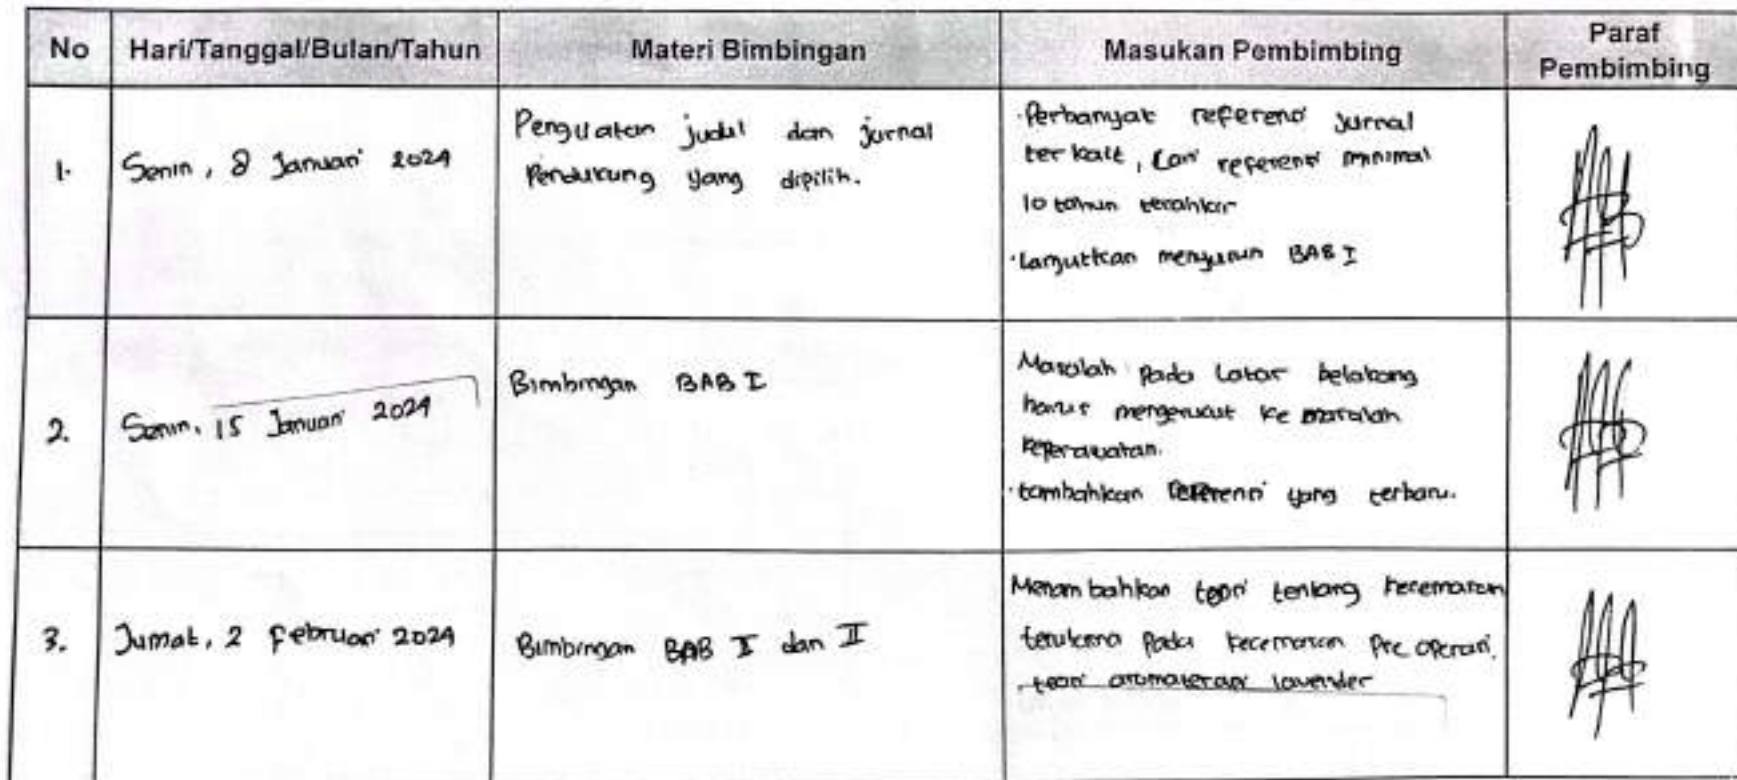 No Hari/Tanggal/Bulan/Tahun Materi Bimbingan Masukan Pembimbing Paraf Pembimbing
1. Senin, 8 Januari 2024
Penguatan judul dan jurnal
Pendukung yang dipilih.
·Perbanyak referensi jurnal
terkait, Cari referensi minimal
10 tahun terakhir
·Lanjutkan menyusun BAB I
2. Senin, 15 Januari 2024
Bimbingan BAB I
Masalah pada Latar belakang
harus mengerucut ke masalah
keperawatan.
·tambahkan referensi yang terbaru.
3. Jumat, 2 Februari 2024
Bimbingan BAB I dan II
Menambahkan teori tentang kecemasan
terutama pada kecemasan Pre operasi.
, teori aromaterapi lavender